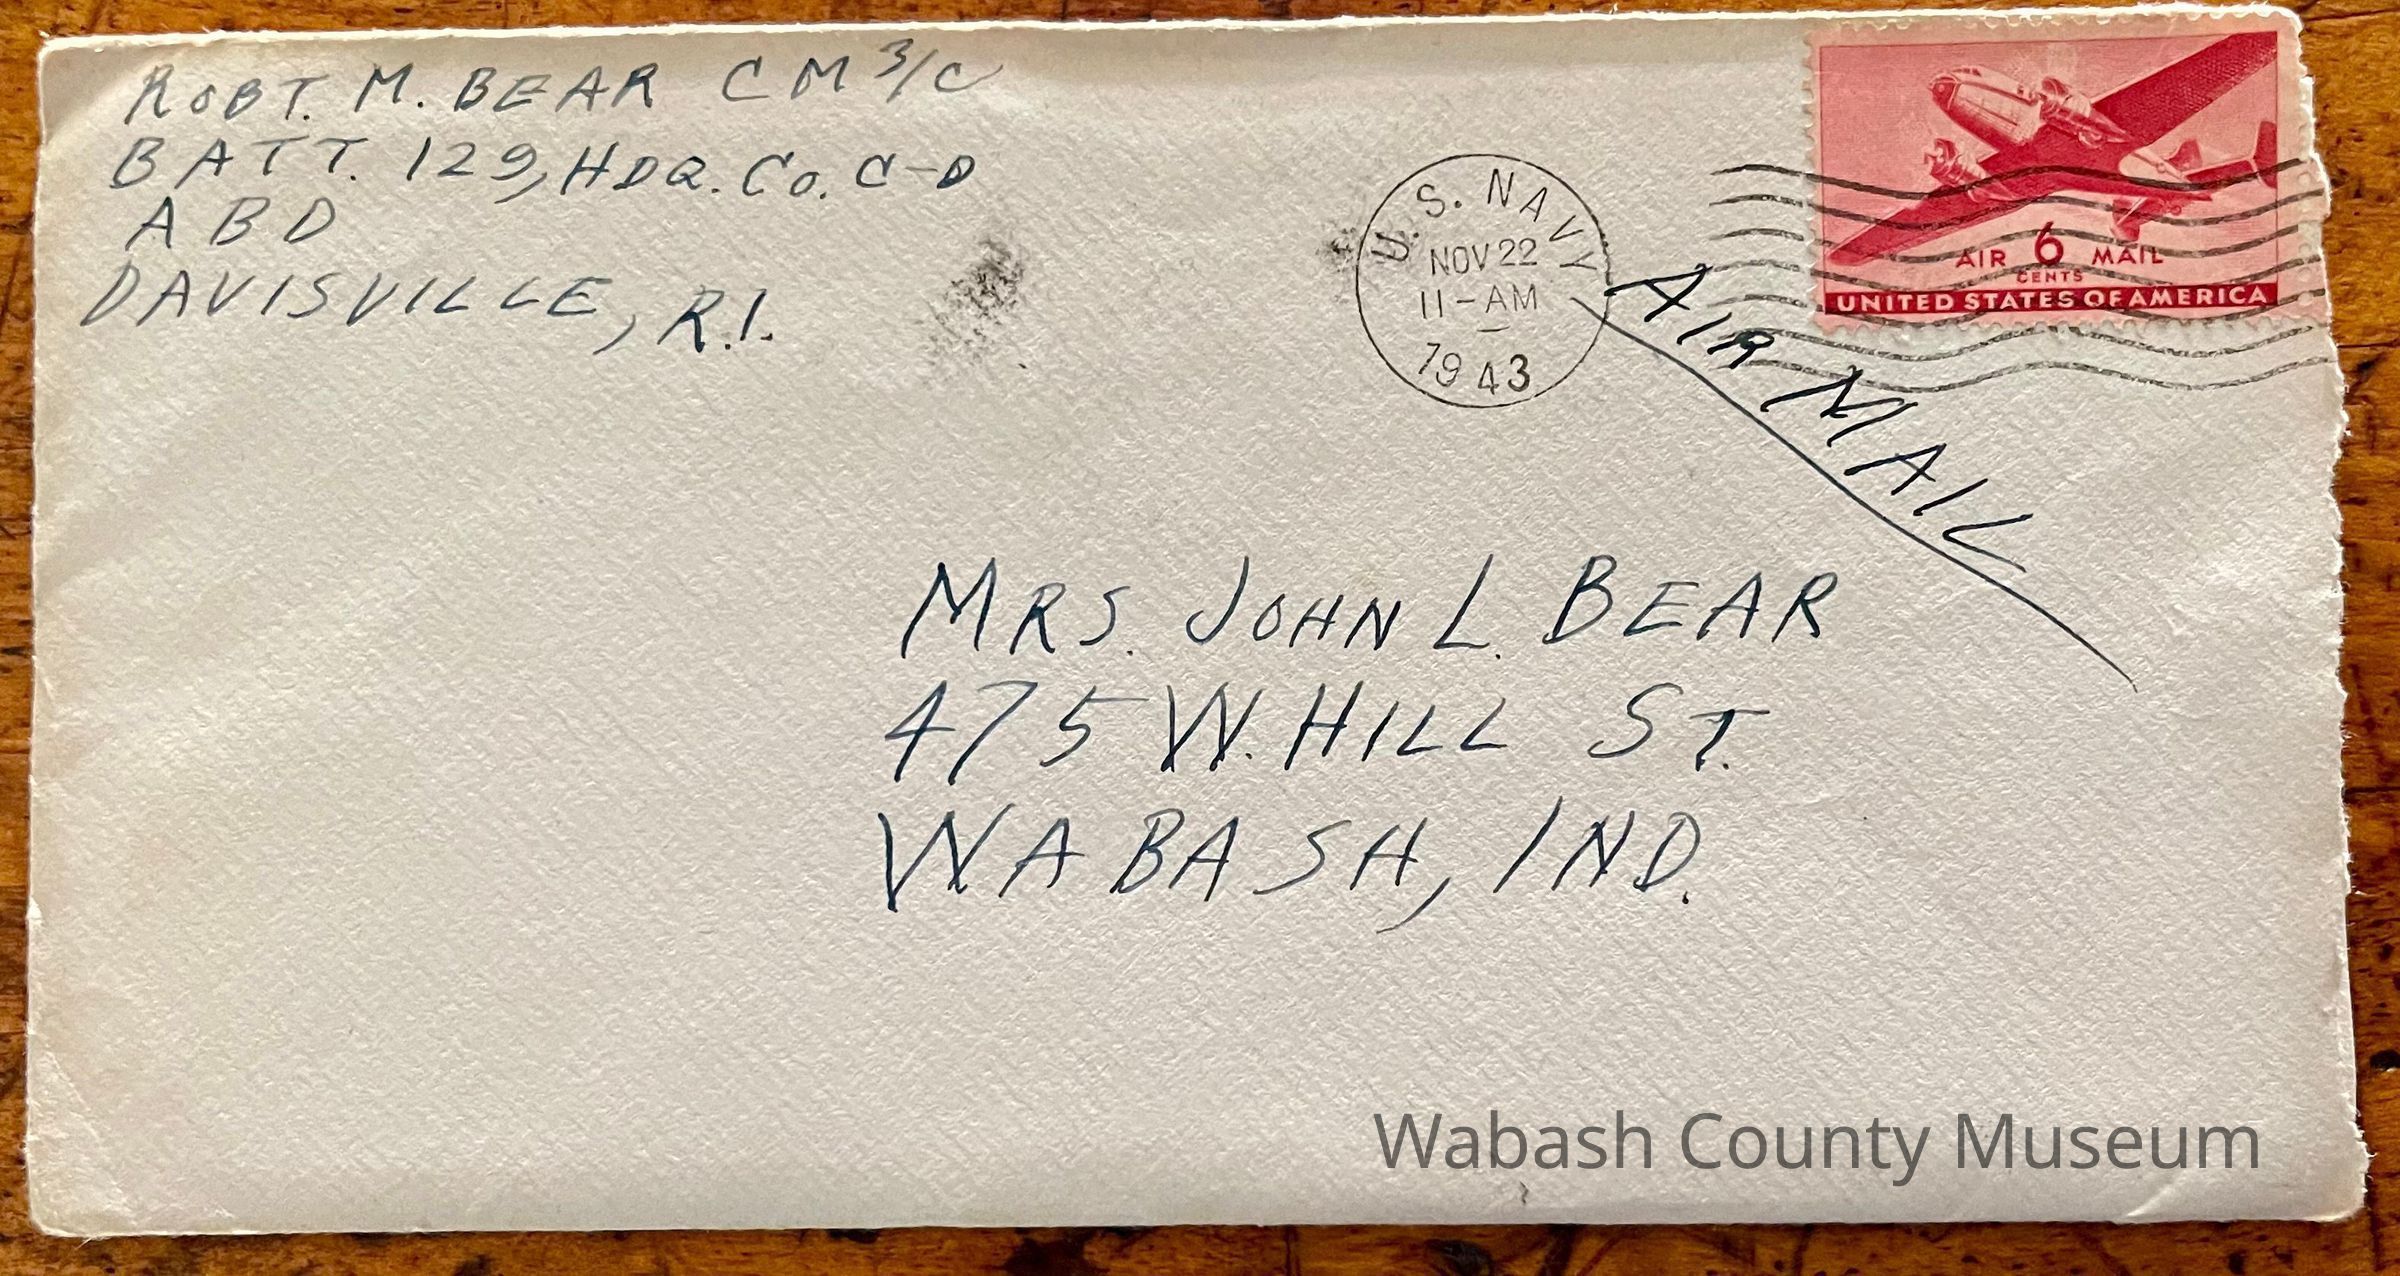 ROBT. M. BEAR CM 3/C
BATT. 129, HDQ. CO. C-D
ABD
DAVISVILLE, R.I.
U.S. NAVY
NOV 22
11-AM
1943
AIR 6 MAIL
CENTS
UNITED STATES OF AMERICA
AIR MAIL
MRS. JOHN L. BEAR
475 W. HILL ST.
WABASH, IND.
Wabash County Museum